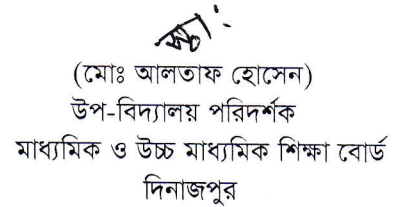 স্বাঃ
(মোঃ আলতাফ হোসেন)
উপ-বিদ্যালয় পরিদর্শক
মাধ্যমিক ও উচ্চ মাধ্যমিক শিক্ষা বোর্ড
দিনাজপুর